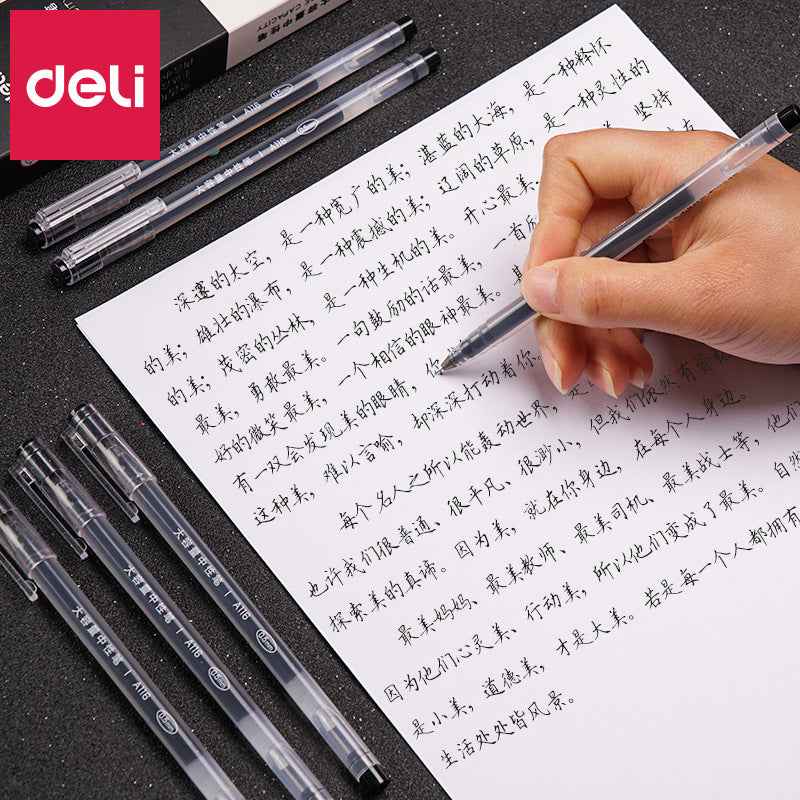 deli
CAPACITY
大容量中性笔 | A116 0.5mm
大容量中性笔 | A116 0.5mm
深邃的太空,是一种宽广的美;湛蓝的大海,是一种释怀
的美;雄壮的瀑布,是一种震撼的美;辽阔的草原,是一种灵性的
的美;茂密的丛林,是一种生机的美。开心最美 美,坚持
最美,勇敢最美。一句鼓励的话最美,一首 友
好的微笑最美,一个相信的眼神最美。
有一双会发现美的眼睛,你
这种美,难以言喻,却深深打动着你。
每个名人之所以能轰动世界,是
也许我们很普通、很平凡、很渺小,但我们依然有
探索美的真谛。因为美,就在你身边,在每个人身边。
最美妈妈、最美教师、最美司机、最美战士等,他们
因为他们心灵美、行动美,所以他们变成了最美。自然
是小美,道德美,才是大美。若是每一个人都拥有
生活处处皆风景。
大容量中性笔 | A116 0.5mm
大容量中性笔 | A116 0.5mm
大容量中性笔 | A116 0.5mm